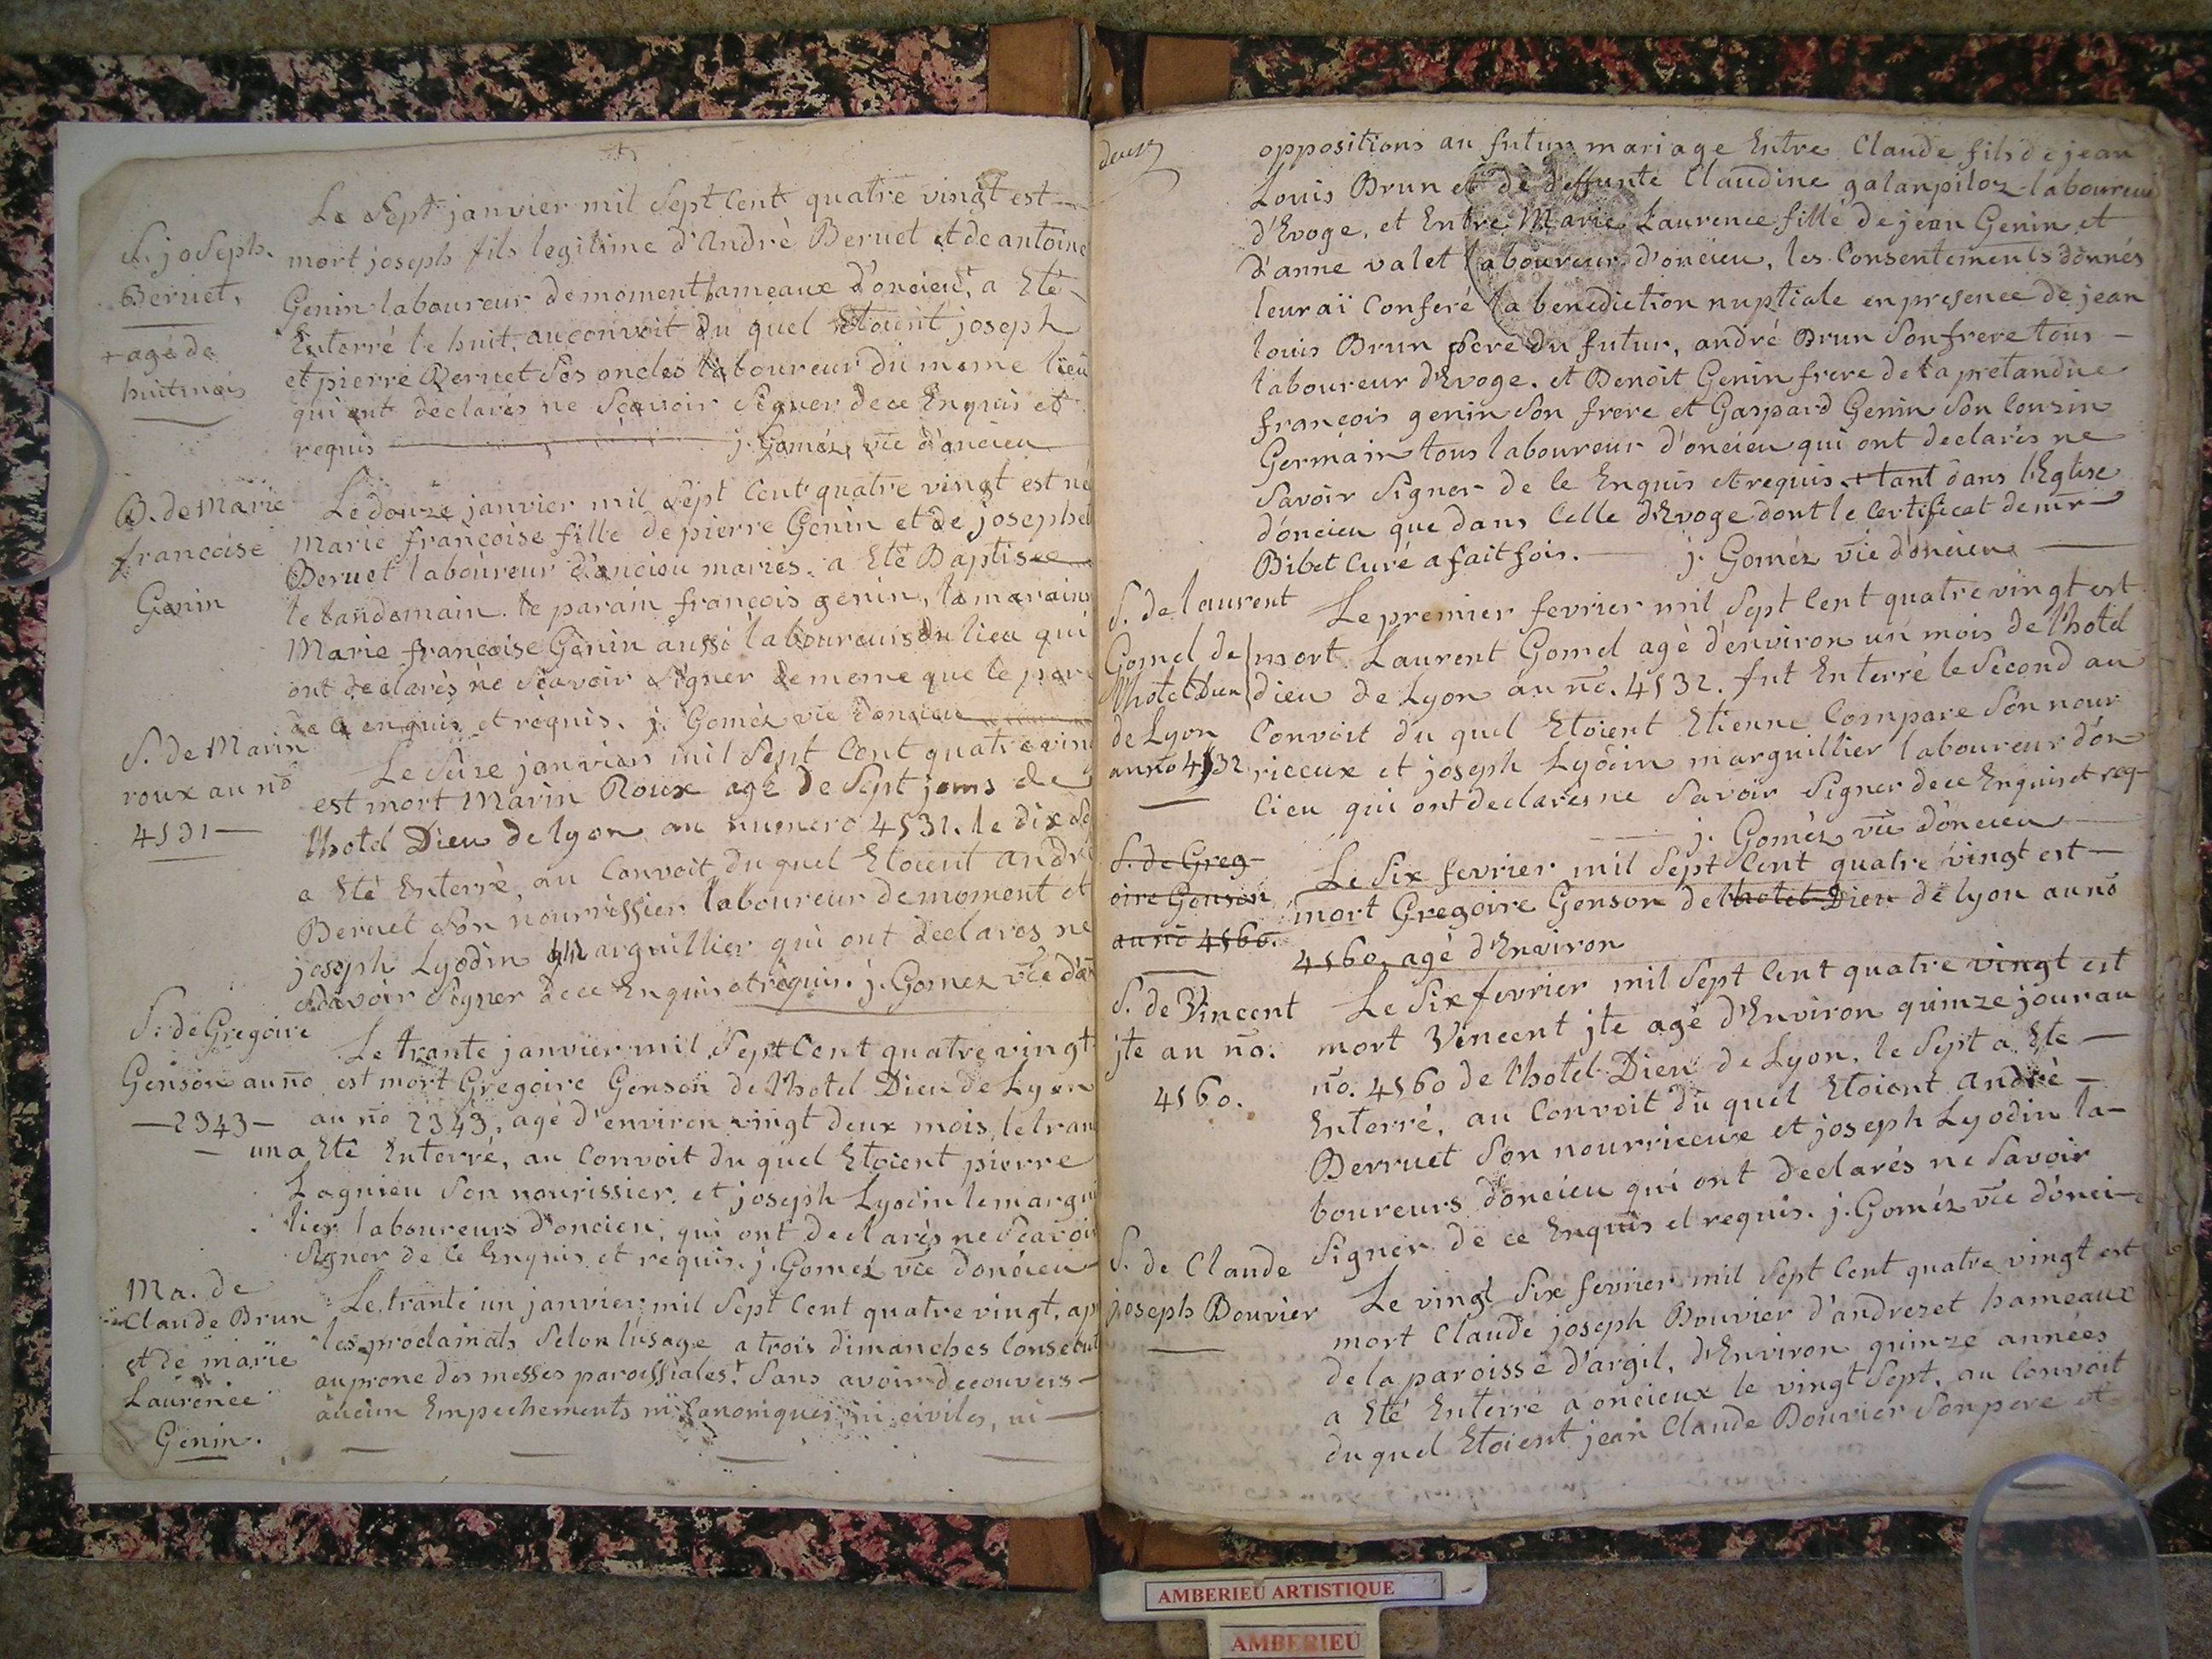 Le Sept janvier mil Sept Cent quatre vingt est
S. joseph
Beruet,
+ agé de
huit mois
mort joseph fils legitime d'André Beruet et de antoine
Genin laboureur de moment hameaux d'oncieu, + a Eté
Enterré le huit, au convoit du quel Etoient joseph
et pierre Beruet Ses oncles laboureur du meme lieu
qui ont declarés ne Scavoir Signer de ce Enquis et
requis j. Goméz vic d'oncieu
B. de Marie
francoise
Genin
Le douze janvier mil Sept Cent quatre vingt est né
Marie francoise fille de pierre Genin et de josephe
Beruet laboureur d'oncieu mariés. a Eté Baptisee
le landemain. le parain francois genin, la maraine
Marie francoise Genin aussi laboureurs du lieu qui
ont declarés ne Scavoir Signer de meme que le pere
de ce enquis et requis. j. Goméz vic d'oncieu
S. de Marin
roux au no
4531
Le Seize janvier mil Sept Cent quatre ving
est mort Marin Roux agé de Sept jours de
l'hotel Dieu de lyon au numero 4531. le dix Se
a Eté Enterré, au Convoit du quel Etoient andré
Beruet Son nourrissier laboureur de moment et
joseph Lyodin marguillier qui ont declarés ne
Scavoir Signer de ce Enquis et requis. j. Gomez vic d'on
S. de Gregoire
Genson au no
2343
Le trante janvier mil Sept Cent quatre vingt
est mort Gregoire Genson de l'hotel Dieu de Lyon
au no 2343, agé d'environ vingt deux mois, le tran
un a Eté Enterré, au Convoit du quel Etoient pierre
Lagnieu Son nourissier, et joseph Lyodin le margui
lier laboureurs d'oncieu, qui ont declarés ne Scavoir
Signer de Ce Enquis et requis. j. Goméz vic d'oncieu
Ma. de
Claude Brun
et de marie
Laurence
Genin.
Le trante un janvier mil Sept Cent quatre vingt, ap
les proclamats Selon l'usage a trois dimanches Consecut
au prone des messes paroissiales, + Sans avoir decouvers
aucun Empechements ni Canoniques, ni civiles, ni
deux
oppositions au futur mariage Entre Claude fils de jean
Louis Brun et de deffunte Claudine galanpiloz laboureur
d'Evoge, et Entre Marie Laurence fille de jean Genin et
d'anne valet laboureur d'oncieu, les Consentements donnés
leurai Conferé la benediction nuptiale en presence de jean
louis Brun pere du futur, andré Brun Son frere tous
laboureur d'Evoge. et Benoit Genin frere de la pretandue
francois genin Son frere et Gaspard Genin Son Cousin
Germain tous laboureur d'oncieu qui ont declarés ne
Savoir Signer de Ce Enquis et requis. + tant dans l'Eglise
d'oncieu que dans Celle d'Evoge dont le Certificat de mr
Bibet Curé a fait fois. j. Goméz vic d'oncieu
S. de laurent
Gomel de
l'hotel Dieu
de Lyon
au no 4532
Le premier fevrier mil Sept Cent quatre vingt est
mort Laurent Gomel agé d'environ un mois de l'hotel
dieu de Lyon au no. 4532. fut Enterré le Second au
Convoit du quel Etoient Etienne Compare Son nour
riceux et joseph Lyodin marguillier laboureur d'on
cieu qui ont declarés ne Savoir Signer de ce Enquis et req
j. Goméz vic d'oncieu
S. de Greg
oire Genson
au no 4560.
Le Six fevrier mil Sept Cent quatre vingt est
mort Gregoire Genson de l'hotel Dieu de lyon au no
4560, agé d'Environ
S. de Vincent
jte au no.
4560.
Le Six fevrier mil Sept Cent quatre vingt est
mort Vincent jte agé d'Environ quinze jour au
no. 4560 de l'hotel Dieu de Lyon, le Sept a Eté
Enterré, au Convoit du quel Etoient andrè
Berruet Son nourriceux et joseph Lyodin la-
boureurs d'oncieu qui ont declarés ne Savoir
Signer de ce Enquis et requis. j. Goméz vic d'onci
S. de Claude
joseph Bouvier
Le vingt Six fevrier mil Sept Cent quatre vingt est
mort Claude joseph Bouvier d'andrezet hameaux
de la paroisse d'argil, d'Environ quinze années
a Eté Enterré a oncieux le vingt Sept, au Convoit
du quel Etoient jean Claude Bouvier Son pere et
AMBERIEU ARTISTIQUE
AMBERIEU